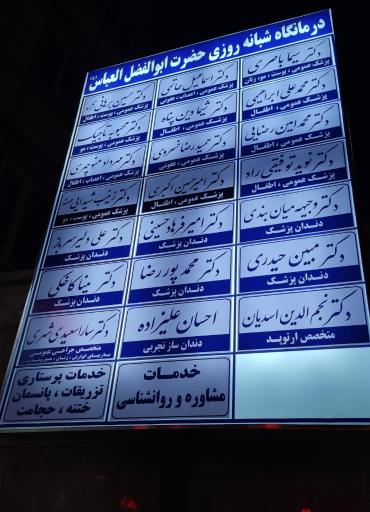 درمانگاه شبانه روزی حضرت ابوالفضل العباس (ع)
دکتر سیما باصری
پزشک عمومی ، پوست ، مو، زنان
دکتر اسماعیل حاتمی
پزشک عمومی ، اعصاب ، عفونی
دکتر حسین برهانی نژاد
پزشک عمومی ، پوست ، اطفال
دکتر محمدعلی ابراهیمی
پزشک عمومی ، اطفال
دکتر شیما دین پناه
پزشک عمومی ، اطفال
دکتر محبوبه تاجیک
پزشک عمومی ، پوست ، مو
دکتر محمدامین رضایی
پزشک عمومی ، اطفال
دکتر حمیدرضا خسروی
پزشک عمومی ، عفونی
دکتر مهرداد منوچهری
پزشک عمومی ، اعصاب ، اطفال
دکتر نوید توفیقی راد
پزشک عمومی ، اطفال
دکتر امیرحسین اکبری
پزشک عمومی ، اطفال
دکتر
پزشک عمومی ، پوست ، مو
دکتر وجیهه میان بندی
دندان پزشک
دکتر امیر فرهاد حسینی
دندان پزشک
دکتر علی دلیر سرباز
دندان پزشک
دکتر مبین حیدری
دندان پزشک
دکتر محمد پور رضا
دندان پزشک
دکتر مینا کاخکی
دندان پزشک
دکتر نجم الدین اسدیان
متخصص ارتوپد
احسان علیزاده
دندان ساز تجربی
دکتر سارا سعیدی
متخصص جراحی عمومی
بیماریهای گوارش ، زنان ،
خدمات
مشاوره و روانشناسی
خدمات پرستاری
تزریقات ، پانسمان
ختنه ، حجامت